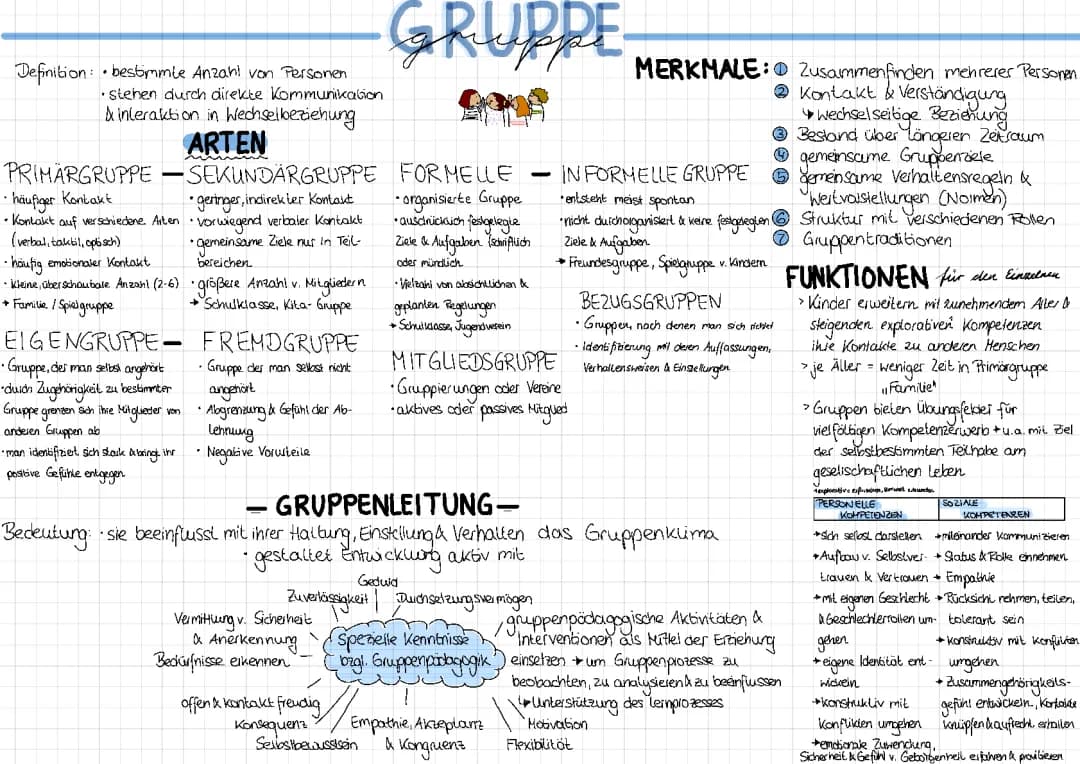 GRUPPE
gruppe
Definition: • bestimmte Anzahl von Personen
• stehen durch direkte Kommunikation
& Interaktion in Wechselbeziehung
ARTEN
PRIMÄRGRUPPE — SEKUNDÄRGRUPPE
· häufiger Kontakt
· Kontakt auf verschiedene Arten
(verbal, taktil, optisch)
· häufig emotionaler Kontakt
· kleine, überschaubare Anzahl (2-6)
→ Familie / Spielgruppe
· geringer, indirekter Kontakt
· vorwiegend verbaler Kontakt
· gemeinsame Ziele nur in Teil-
bereichen
· größere Anzahl v. Mitgliedern
→ Schulklasse, Kita-Gruppe
FORMELLE — INFORMELLE GRUPPE
· organisierte Gruppe
· ausdrücklich festgelegte
Ziele & Aufgaben (schriftlich
oder mündlich
· Vielzahl von absichtlichen &
geplanten Regelungen
→ Schulklasse, Jugendverein
· entsteht meist spontan
· nicht durchorganisiert & keine festgelegten
Ziele & Aufgaben
→ Freundesgruppe, Spielgruppe v. Kindern
EIGENGRUPPE — FREMDGRUPPE
· Gruppe, der man selbst angehört
· durch Zugehörigkeit zu bestimmter
Gruppe grenzen sich ihre Mitglieder von
anderen Gruppen ab
· man identifiziert sich stark & bringt ihr
positive Gefühle entgegen
· Gruppe der man selbst nicht
angehört
· Abgrenzung & Gefühl der Ab-
lehnung
· Negative Vorurteile
MITGLIEDSGRUPPE
· Gruppierungen oder Vereine
· aktives oder passives Mitglied
BEZUGSGRUPPEN
· Gruppen, nach denen man sich richtet
· Identifizierung mit deren Auffassungen,
Verhaltensweisen & Einstellungen
MERKMALE:
① Zusammenfinden mehrerer Personen
② Kontakt & Verständigung
↳ wechselseitige Beziehung
③ Bestand über längeren Zeitraum
④ gemeinsame Gruppenziele
⑤ gemeinsame Verhaltensregeln &
Wertvorstellungen (Normen)
⑥ Struktur mit verschiedenen Rollen
⑦ Gruppentraditionen
FUNKTIONEN für den Einzelnen
> Kinder erweitern mit zunehmendem Alter &
steigenden explorativen¹ Kompetenzen
ihre Kontakte zu anderen Menschen
> je Älter = weniger Zeit in Primärgruppe
„Familie"
> Gruppen bieten Übungsfelder für
vielfältigen Kompetenzerwerb → u.a. mit Ziel
der selbstbestimmten Teilhabe am
gesellschaftlichen Leben
PERSONELLE
KOMPETENZEN
SOZIALE
KOMPETENZEN
→ sich selbst darstellen
→ Aufbau v. Selbstver-
trauen & Vertrauen
→ mit eigenen Geschlecht
& Geschlechterrollen um-
gehen
→ eigene Identität ent-
wickeln
→ konstruktiv mit
Konflikten umgehen
→ emotionale Zuwendung,
Sicherheit & Gefühl v. Geborgenheit erfahren & praktizieren
→ miteinander kommunizieren
→ Status & Rolle einnehmen
→ Empathie
→ Rücksicht nehmen, teilen,
tolerant sein
→ konstruktiv mit Konflikten
umgehen
→ Zusammengehörigkeits-
gefühl entwickeln, Kontakte
knüpfen & aufrecht erhalten
— GRUPPENLEITUNG —
Bedeutung: · sie beeinflusst mit ihrer Haltung, Einstellung & Verhalten das Gruppenklima
· gestaltet Entwicklung aktiv mit
Spezielle Kenntnisse
bzgl. Gruppenpädagogik
Geduld
Zuverlässigkeit
Durchsetzungsvermögen
Vermittlung v. Sicherheit
& Anerkennung
Bedürfnisse erkennen
offen & kontaktfreudig
Konsequenz
Selbstbewusstsein
Empathie, Akzeptanz
& Kongruenz
gruppenpädagogische Aktivitäten &
Interventionen als Mittel der Erziehung
einsetzen → um Gruppenprozesse zu
beobachten, zu analysieren & zu beeinflussen
↳ Unterstützung des Lernprozesses
Motivation
Flexibilität